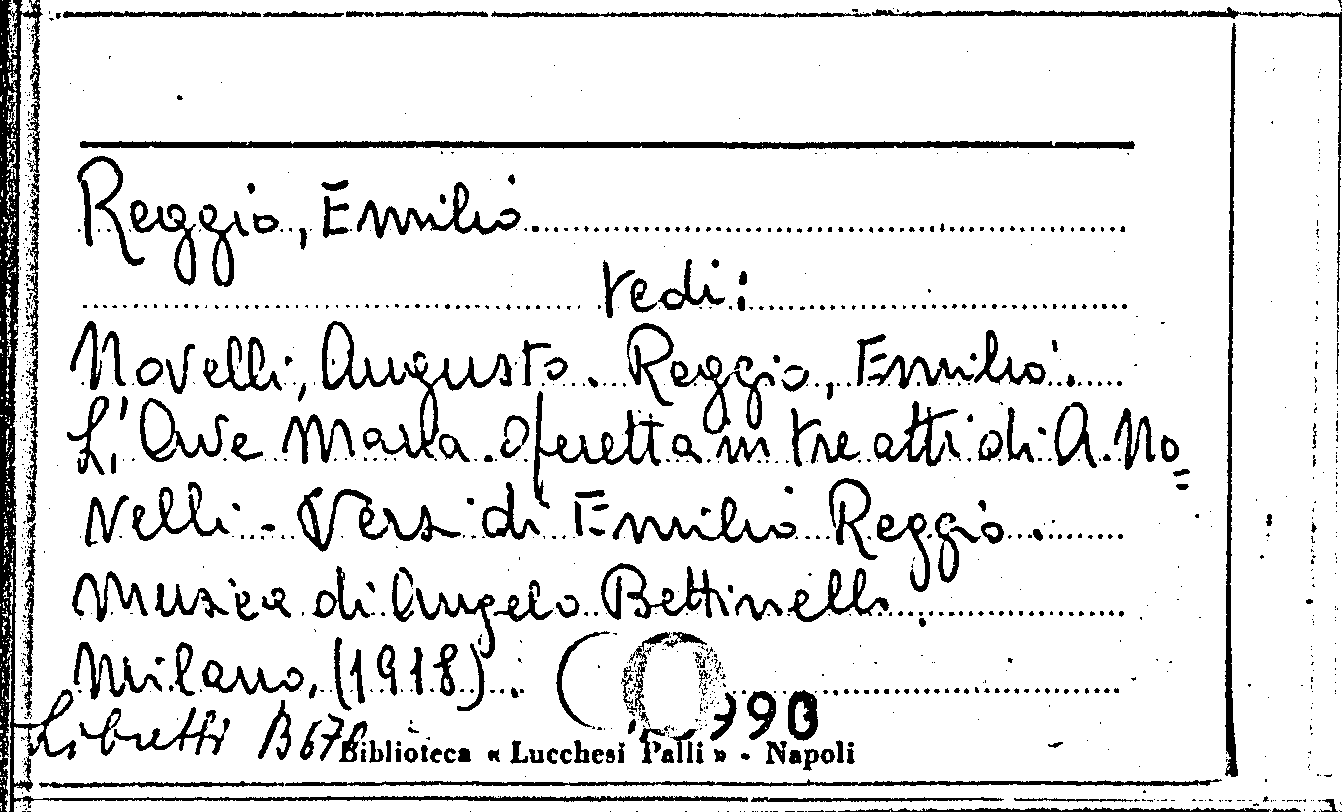 Reggio, Emilio.
vedi:
Novelli, Augusto. Reggio, Emilio.
L'Ave Maria. Operetta in tre atti di A. No=
velli - Versi di Emilio Reggio.
Musica di Angelo Bettinelli.
Milano, (1918).
990
Libretti B
Biblioteca « Lucchesi Palli » - Napoli